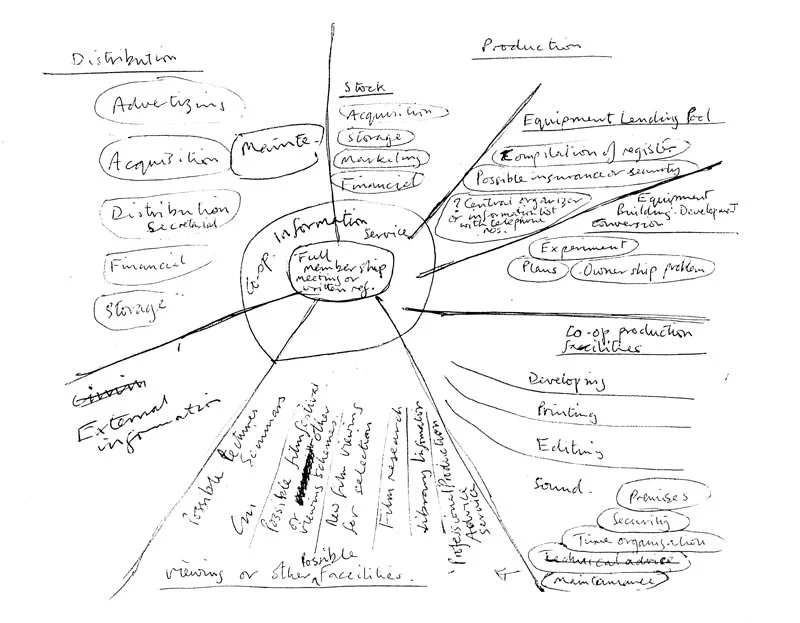 Distribution
Advertizing
Acquisition
Mainte.
Distribution
Secretarial
Financial
Storage
Stock
Acquisition
Storage
Marketing
Financial
Production
Equipment Lending Pool
Compilation of register
Possible insurance or security
? Central organizer
or information list
with telephone
nos.
Equipment
Building. Development
conversion
Experiment
Plans
Ownership problem
Co-op. information service
Full
membership
meeting or
written ref.
Co-op production
facilities
Developing
Printing
Editing
Sound.
Premises
Security
Time organisation
Technical advice
Maintainance
External
information
Possible
Seminars
Possible film festival
or other
viewing schemes
New film viewing
for selection
Film research
Library Information
Professional Production
Advice
Service
Viewing or other Possible Facilities.